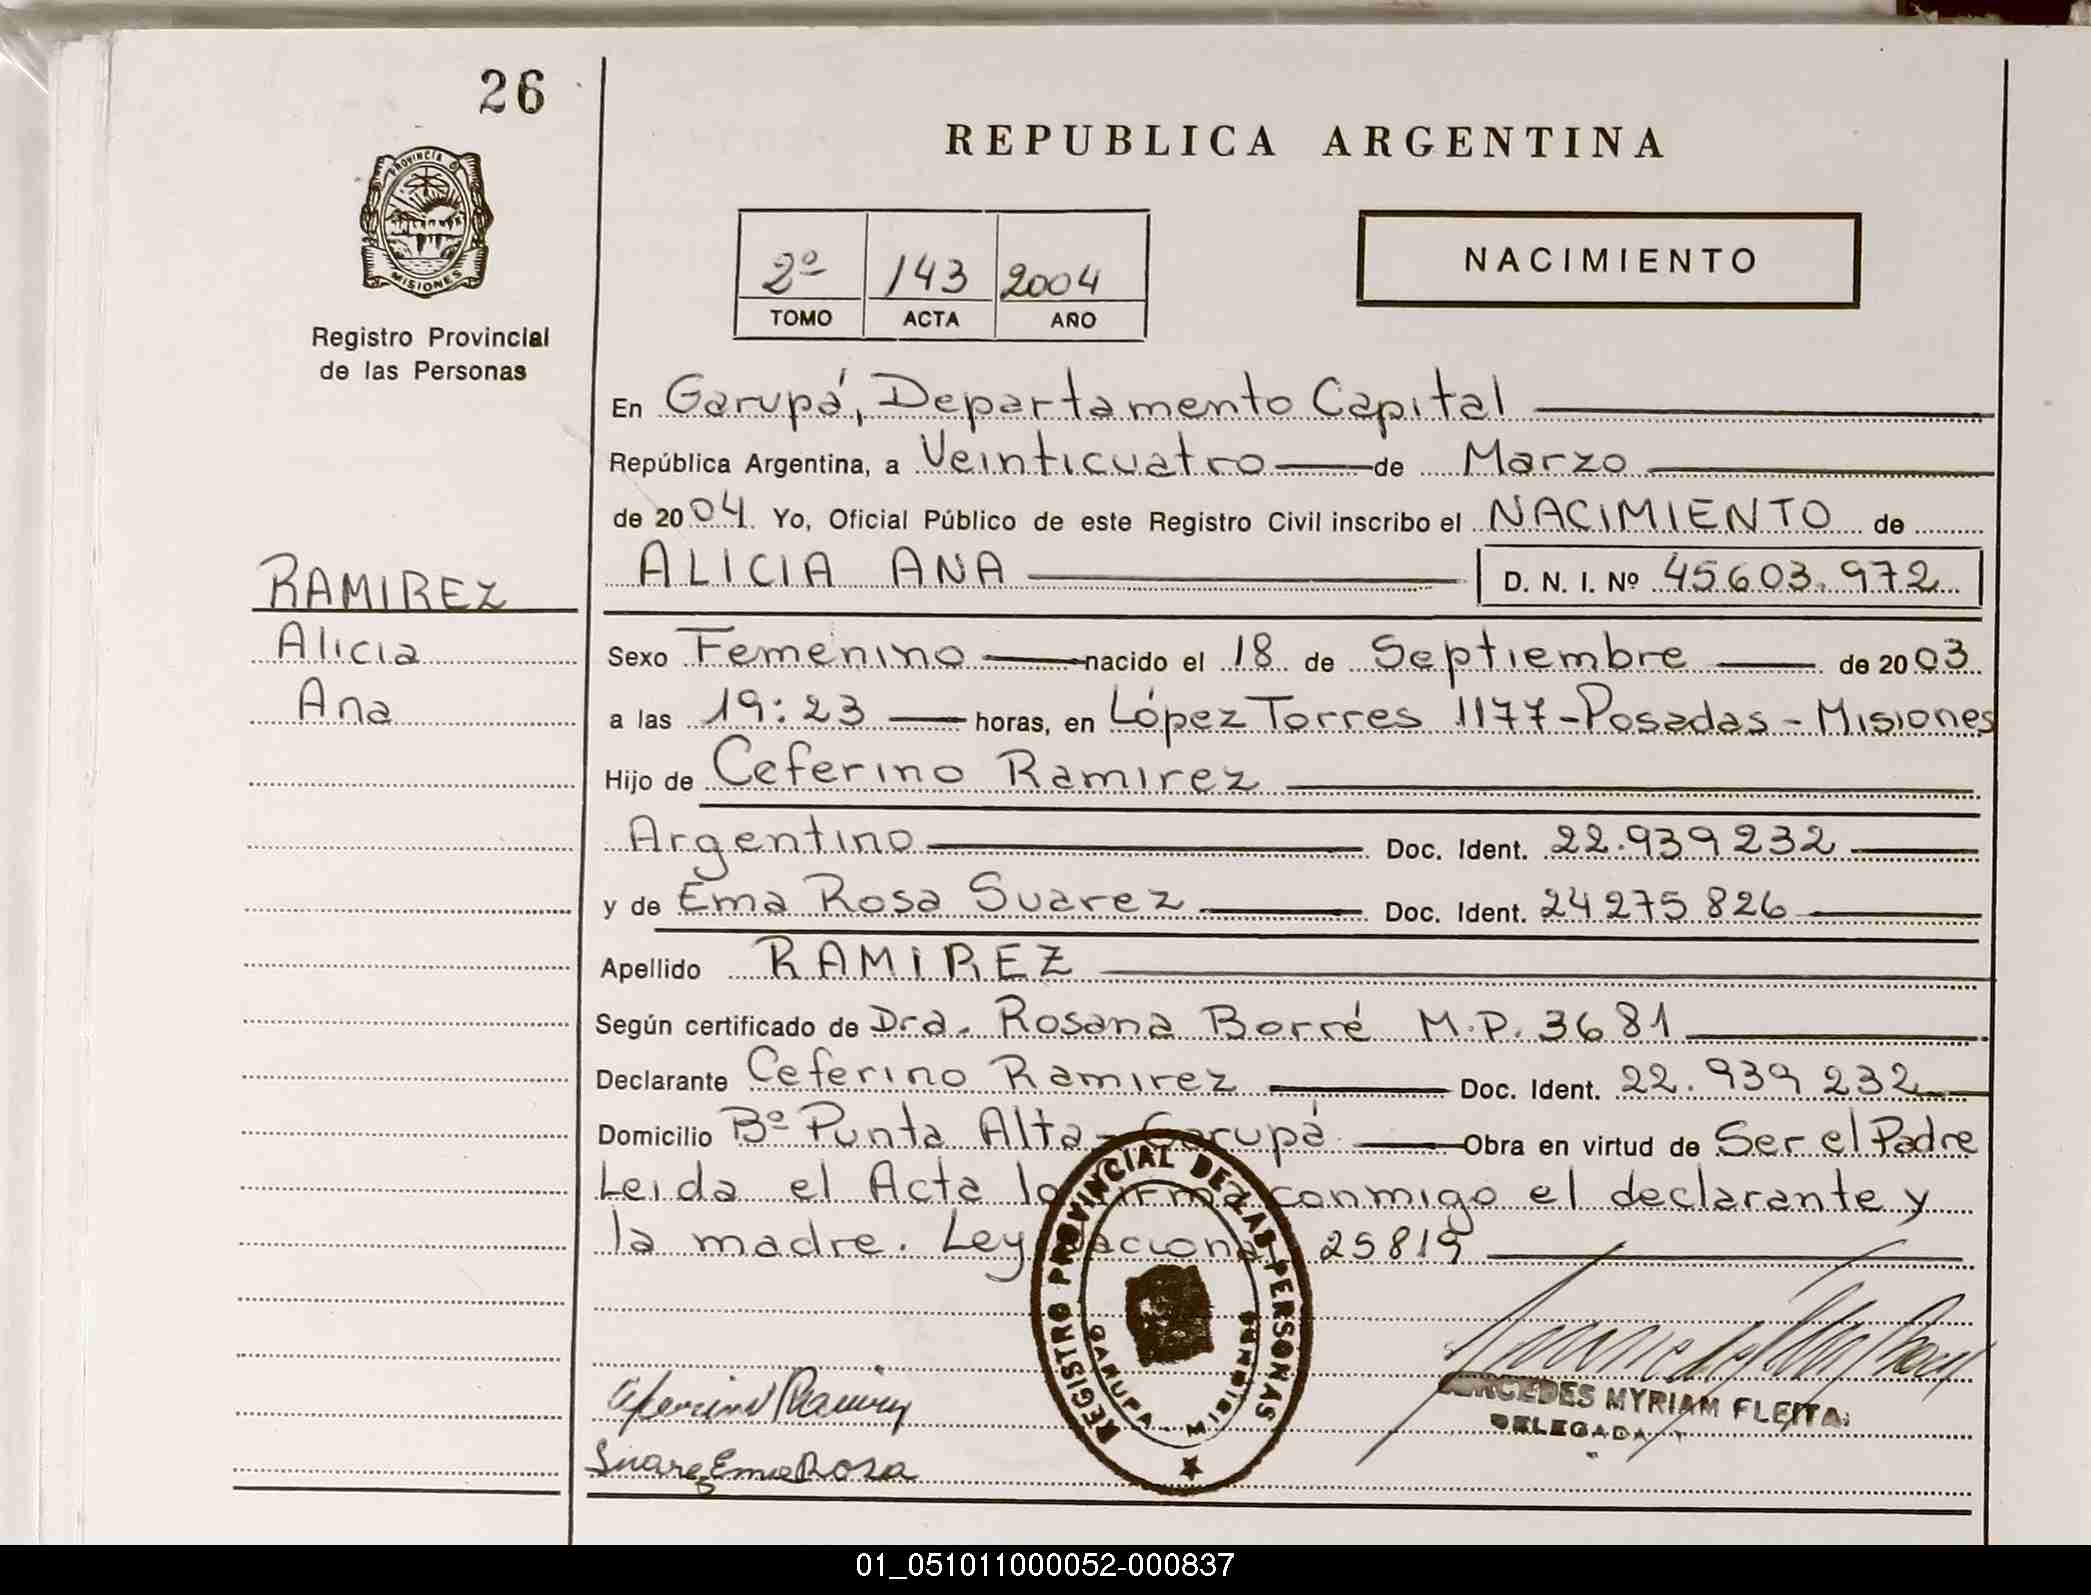 26
REPUBLICA ARGENTINA
PROVINCIA D
MISIONES
Registro Provincial
de las Personas
2º 143 2004
TOMO ACTA AÑO
NACIMIENTO
En Garupá, Departamento Capital
República Argentina, a Veinticuatro de Marzo
de 2004. Yo, Oficial Público de este Registro Civil inscribo el NACIMIENTO de
ALICIA ANA D. N. I. Nº 45603.972
RAMIREZ
Alicia
Ana
Sexo Femenino nacido el 18 de Septiembre de 2003
a las 19:23 horas, en López Torres 1177-Posadas-Misiones
Hijo de Ceferino Ramirez
Argentino Doc. Ident. 22.939232
y de Ema Rosa Suarez Doc. Ident. 24275826
Apellido RAMIREZ
Según certificado de Dra. Rosana Borré M.P. 3681
Declarante Ceferino Ramirez Doc. Ident. 22.939232
Domicilio Bº Punta Alta-Garupá Obra en virtud de Ser el Padre
Leida el Acta la firma conmigo el declarante y
la madre. Ley Nacional 25819
REGISTRO PROVINCIAL DE LAS PERSONAS
GARUPA
Ceferino Ramirez
Suarez Ema Rosa
MERCEDES MYRIAM FLEITA
DELEGADA
01_051011000052-000837